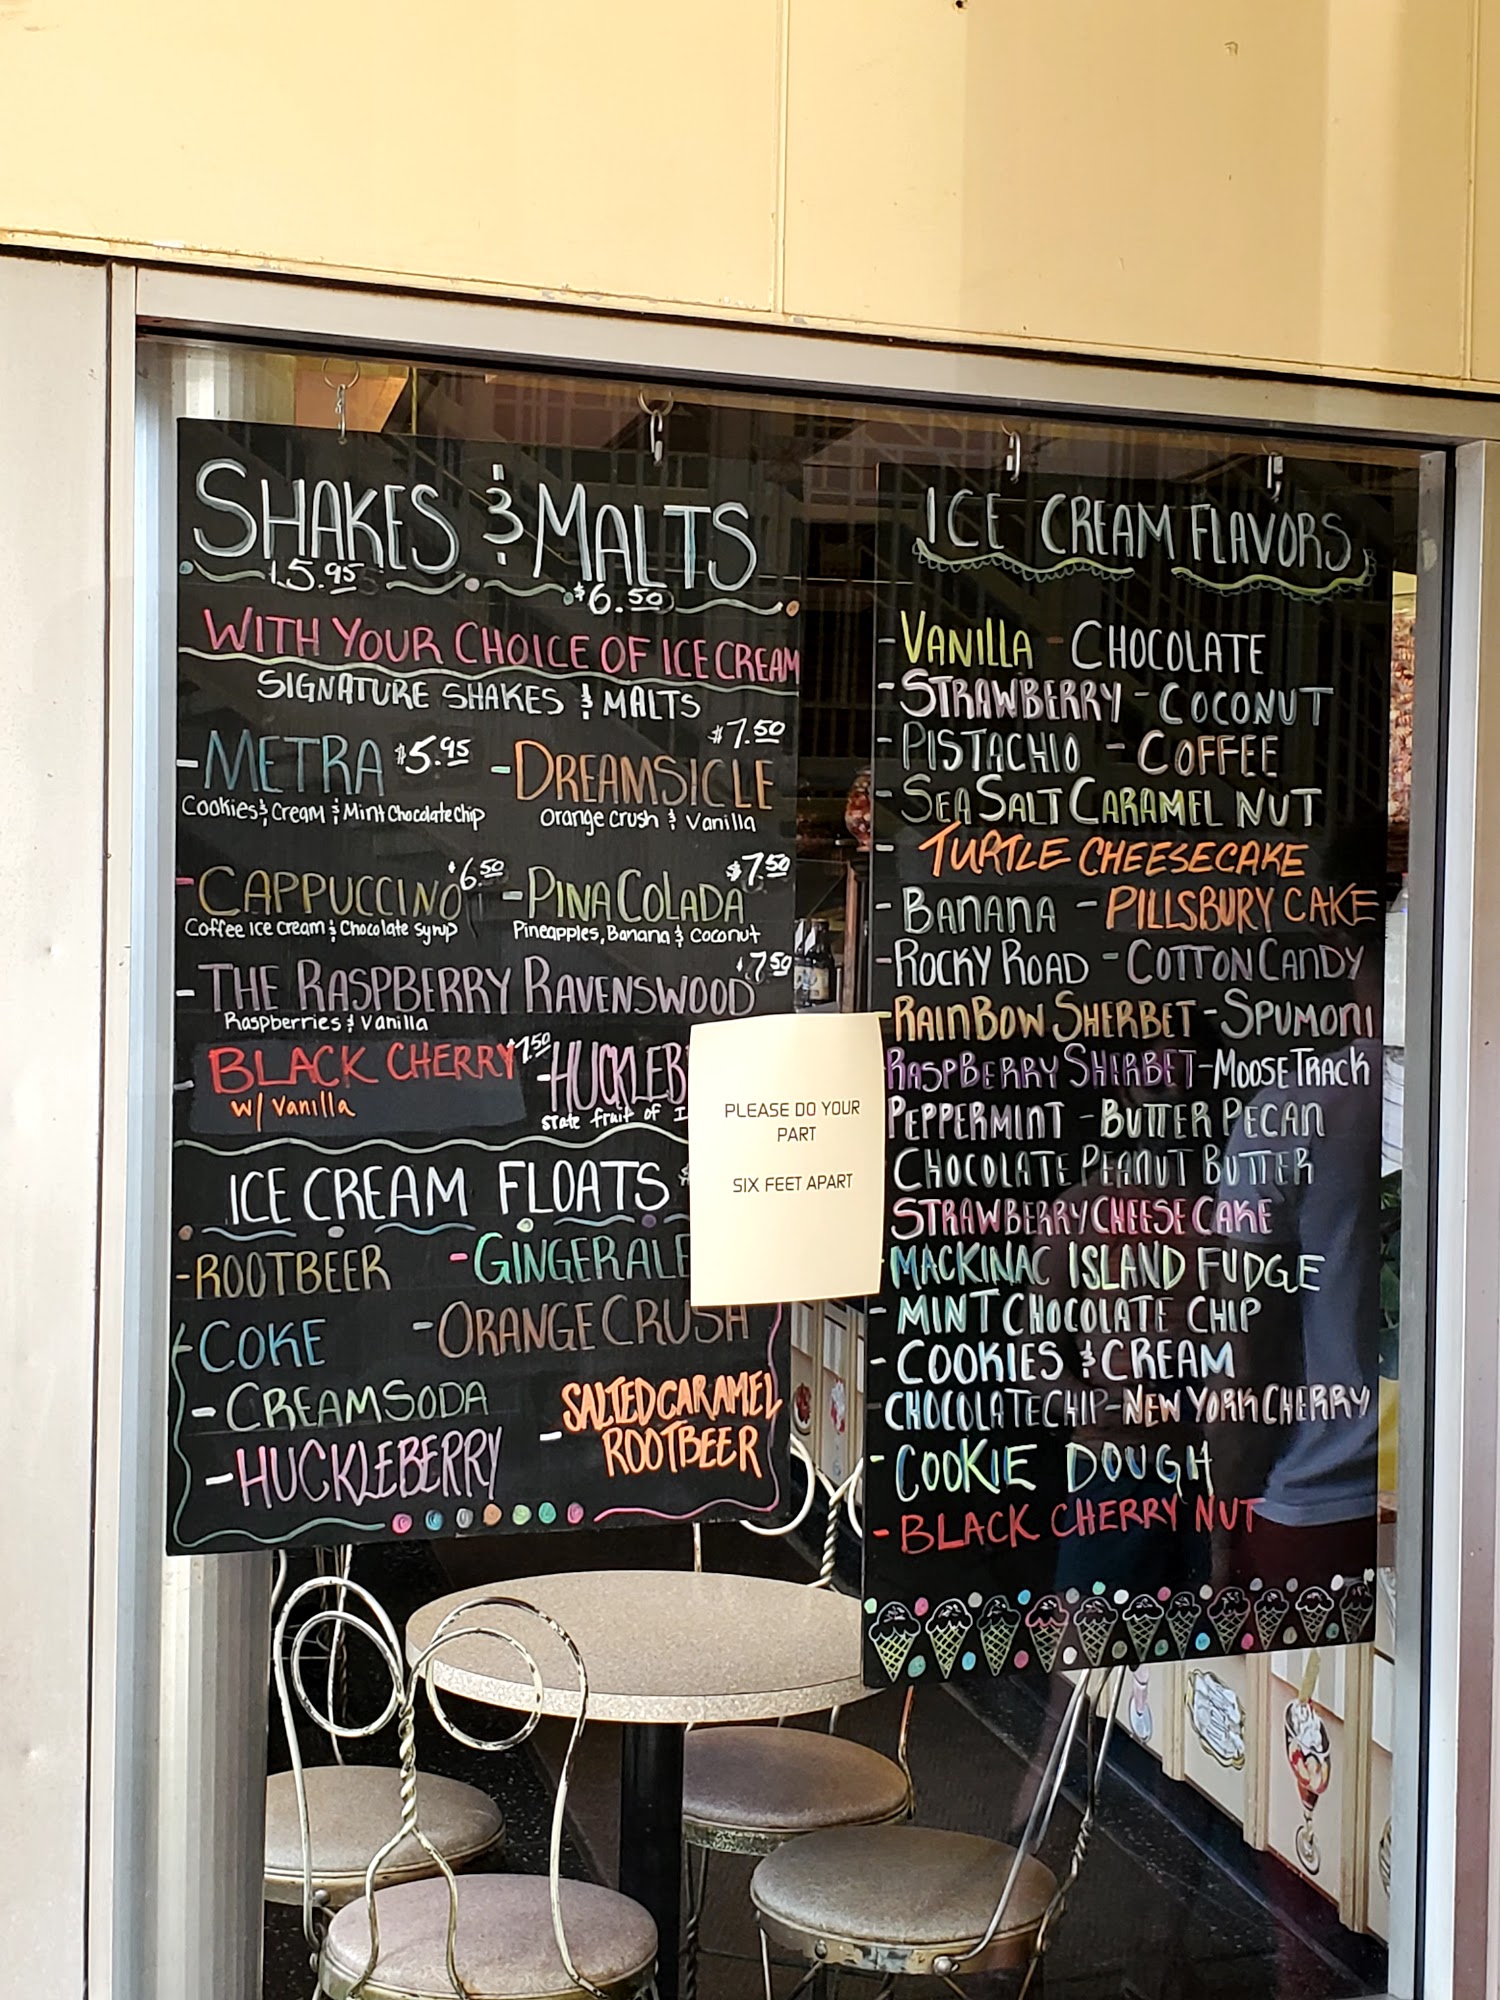 SHAKES & MALTS
$5.95 $6.50
WITH YOUR CHOICE OF ICE CREAM
SIGNATURE SHAKES & MALTS
- METRA $5.95
Cookies & Cream & Mint Chocolate Chip
- DREAMSICLE $7.50
Orange Crush & Vanilla
- CAPPUCCINO $6.50
Coffee Ice Cream & Chocolate Syrup
- PINA COLADA $7.50
Pineapples, Banana & Coconut
- THE RASPBERRY RAVENSWOOD $7.50
Raspberries & Vanilla
- BLACK CHERRY $7.50
w/ Vanilla
- HUCKLEB
State fruit of I
ICE CREAM FLOATS $
- ROOTBEER - GINGERALE
- COKE - ORANGE CRUSH
- CREAM SODA
- SALTED CARAMEL
ROOTBEER
- HUCKLEBERRY
PLEASE DO YOUR
PART
SIX FEET APART
ICE CREAM FLAVORS
- VANILLA - CHOCOLATE
- STRAWBERRY - COCONUT
- PISTACHIO - COFFEE
- SEA SALT CARAMEL NUT
- TURTLE CHEESECAKE
- BANANA - PILLSBURY CAKE
- ROCKY ROAD - COTTON CANDY
- RAINBOW SHERBET - SPUMONI
RASPBERRY SHERBET - MOOSE TRACK
PEPPERMINT - BUTTER PECAN
CHOCOLATE PEANUT BUTTER
STRAWBERRY CHEESE CAKE
MACKINAC ISLAND FUDGE
- MINT CHOCOLATE CHIP
- COOKIES & CREAM
CHOCOLATE CHIP - NEW YORK CHERRY
- COOKIE DOUGH
- BLACK CHERRY NUT